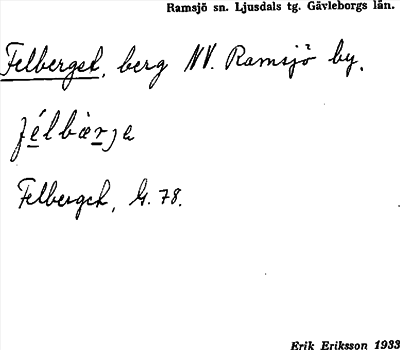 Ramsjö sn. Ljusdals tg. Gävleborgs län.
Felberget, berg NV. Ramsjö by.
Felberget, G. 78.
Erik Eriksson 1933